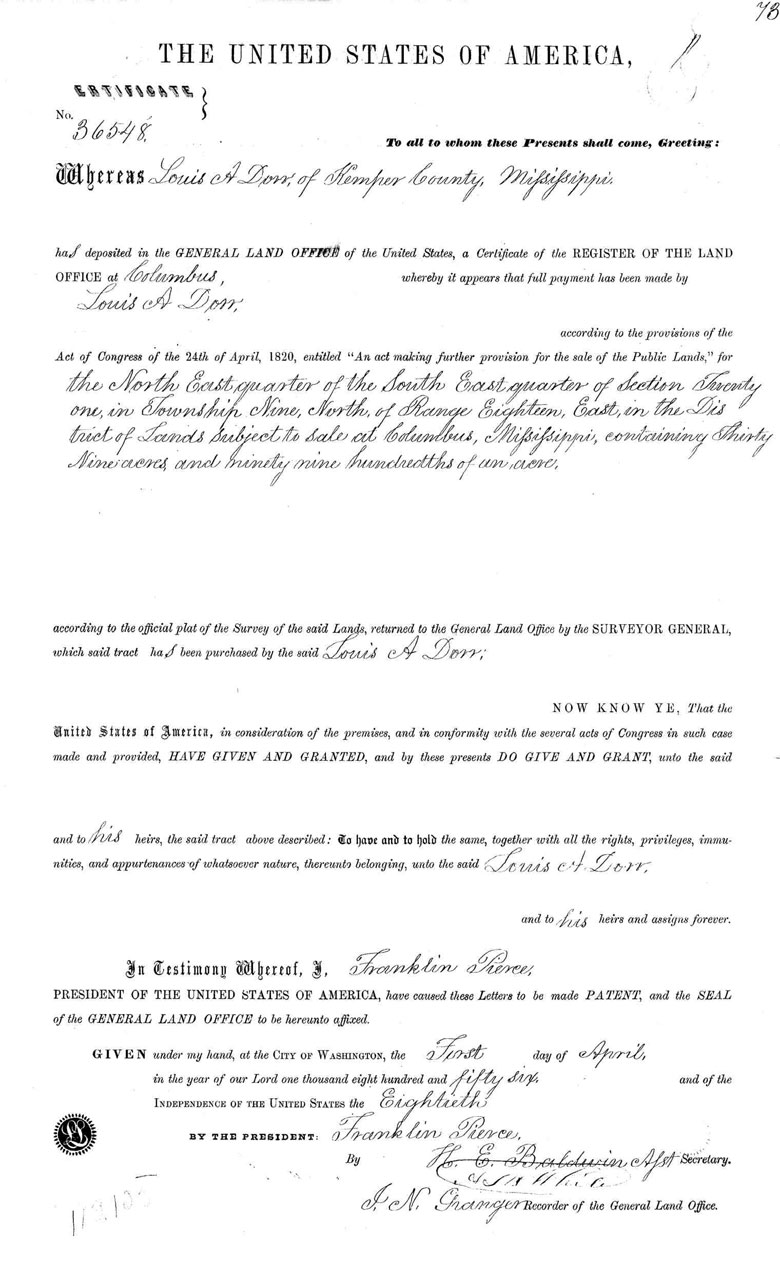 73
THE UNITED STATES OF AMERICA,
CERTIFICATE
No. 36548.
To all to whom these Presents shall come, Greeting:
Whereas Louis A Dorr, of Kemper County, Mississippi.
has deposited in the GENERAL LAND OFFICE of the United States, a Certificate of the REGISTER OF THE LAND
OFFICE at Columbus, whereby it appears that full payment has been made by
Louis A Dorr,
according to the provisions of the
Act of Congress of the 24th of April, 1820, entitled “An act making further provision for the sale of the Public Lands,” for
the North East quarter of the South East quarter of Section Twenty
one, in Township Nine, North, of Range Eighteen, East, in the Dis
trict of Lands subject to sale at Columbus, Mississippi, containing Thirty
Nine acres, and ninety nine hundredths of an acre,
according to the official plat of the Survey of the said Lands, returned to the General Land Office by the SURVEYOR GENERAL,
which said tract has been purchased by the said Louis A Dorr,
NOW KNOW YE, That the
United States of America, in consideration of the premises, and in conformity with the several acts of Congress in such case
made and provided, HAVE GIVEN AND GRANTED, and by these presents DO GIVE AND GRANT, unto the said
and to his heirs, the said tract above described: To have and to hold the same, together with all the rights, privileges, immu-
nities, and appurtenances of whatsoever nature, thereunto belonging, unto the said Louis A Dorr,
and to his heirs and assigns forever.
In Testimony Whereof, I, Franklin Pierce,
PRESIDENT OF THE UNITED STATES OF AMERICA, have caused these Letters to be made PATENT, and the SEAL
of the GENERAL LAND OFFICE to be hereunto affixed.
GIVEN under my hand, at the CITY OF WASHINGTON, the First day of April,
in the year of our Lord one thousand eight hundred and fifty six. and of the
INDEPENDENCE OF THE UNITED STATES the Eightieth
BY THE PRESIDENT: Franklin Pierce,
By H. E. Baldwin Asst Secretary.
J. N. Granger Recorder of the General Land Office.